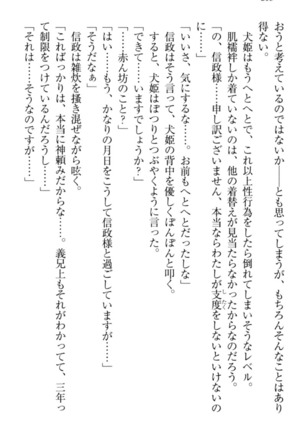 おうと考えているのではないか――とも思ってしまうが、もちろんそんなことはあり
得ない。
犬姫はもうへとへとで、これ以上性行為をしたら倒れてしまいそうなレベル。
肌襦袢しか着ていないのは、他の着替えが見当たらなかったからなのだろう。
「の、信政様……申し訳ございません、本当ならわたしが支度をしないといけないの
に……」
「いいさ、気にするな……。お前もへとへとだったしな」
信政はそう言って、犬姫の背中を優しくぽんぽんと叩く。
すると、犬姫はぽつりとつぶやくように言った。
「できて……いますでしょうか？」
「……赤ん坊のこと？」
「は……もう、かなりの月日をこうして信政様と過ごしていますが……」
「そうだなぁ」
信政は雑炊を掻き混ぜながら呟く。
「こればっかりは、本当に神頼みだからな……。義兄上もそれがわかってて、三年っ
て制限をつけているんだろうし……」
「それは……そうなのですが……」